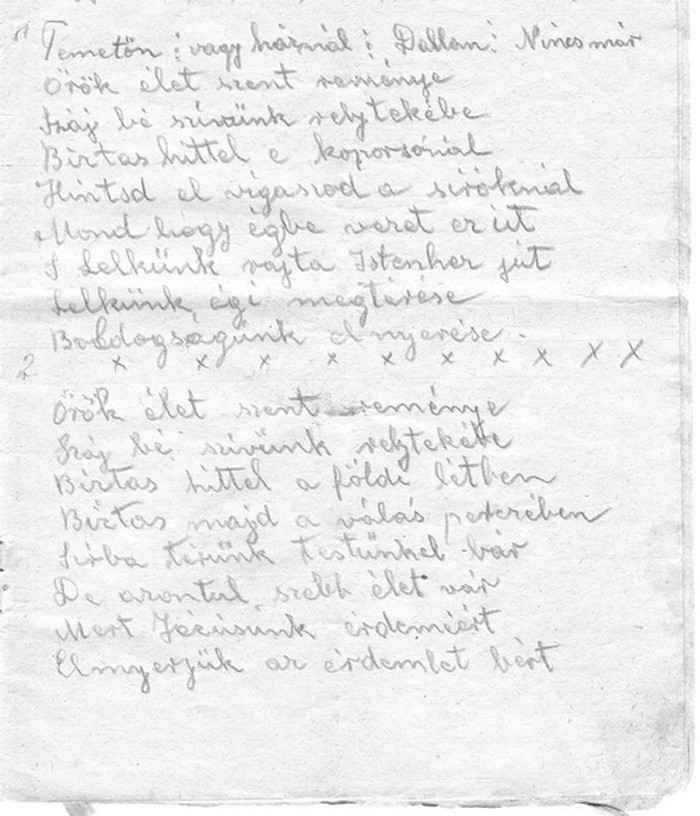 1) Temetőn : vagy háznál : Dallam : Nincs már
Örök élet szent reménye
Szálj bé szívünk rejtekébe
Biztas hittel e koporsónál
Hintsd el vigaszod a síröknál
Mond hogy égbe vezet ez út
S Lelkünk rajta Istenhez jut
Lelkünk égi megtérése
Boldogságunk elnyerése.
2 x x x x x x x x x x
Örök élet szent reménye
Szálj bé szívünk rejtekébe
Biztas hittel a földi létben
Biztas majd a válás perczében
Sírba térünk testünkel bár
De azontul szebb élet vár
Mert Jézusunk érdeméért
Elnyerjük az érdemlet bért